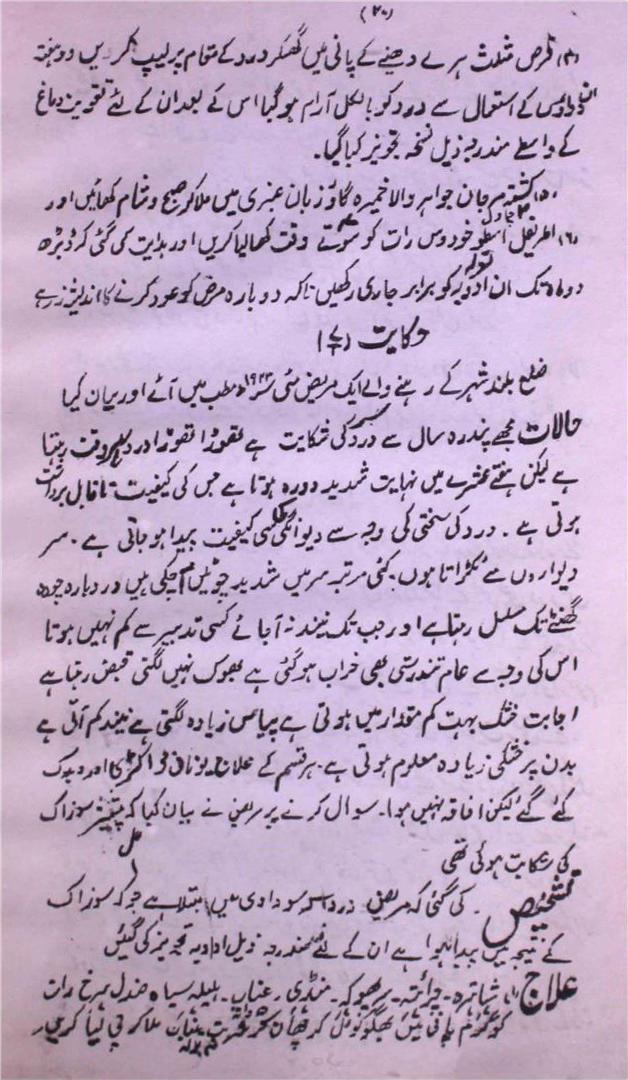 (۲۰)
(۴) قرص مثلث ہرے دھنیے کے پانی میں گھسکر درد کے مقام پر لیپ کریں دو ہفتہ
ان دواؤں کے استعمال سے درد کو بالکل آرام ہو گیا اس کے بعد ان کے لئے تقویت دماغ
کے واسطے مندرجہ ذیل نسخہ تجویز کیا گیا۔
(۵) کشتہ مرجان جواہر والا خمیرہ گاؤ زبان عنبری میں ملا کر صبح و شام کھائیں اور
(۶) اطریفل اسطوخودوس رات کو سوتے وقت کھا لیا کریں اور ہدایت کی گئی کہ ڈیڑھ
دو ماہ تک ان ادویہ کو برابر جاری رکھیں تاکہ دوبارہ مرض کو عود کرنے کا اندیشہ نہ رہے
حکایت
ضلع بلند شہر کے رہنے والے ایک مریض مئی میں مطب میں آئے اور بیان کیا
حالات مجھے پندرہ سال سے درد کی شکایت ہے تھوڑا تھوڑا درد ہر وقت رہتا
ہے لیکن ہفتے عشرے میں نہایت شدید دورہ ہوتا ہے جس کی کیفیت ناقابل برداشت
ہوتی ہے ۔ درد کی سختی کی وجہ سے دیوانگی کی کیفیت پیدا ہو جاتی ہے ۔ سر
دیواروں سے ٹکراتا ہوں۔ کئی مرتبہ سر میں شدید چوٹیں آ چکی ہیں اور دبارہ چودہ
گھنٹے تک مسلسل رہتا ہے اور جب تک نیند نہ آ جائے کسی تدبیر سے کم نہیں ہوتا
اس کی وجہ سے عام تندرستی بھی خراب ہو گئی ہے بھوک نہیں لگتی قبض رہتا ہے
اجابت خشک بہت کم مقدار میں ہوتی ہے پیاس زیادہ لگتی ہے نیند کم آتی ہے
بدن پر خشکی زیادہ معلوم ہوتی ہے۔ ہر قسم کے علاج یونانی ڈاکٹری اور ویدک
کئے گئے لیکن افاقہ نہیں ہوا۔ سوال کرنے پر مریض نے بیان کیا کہ پیشتر سوزاک
کی شکایت ہوئی تھی
تشخیص ۔ کی گئی کہ مریض درد سر سوداوی میں مبتلا ہے جو کہ سوزاک
کے نتیجہ میں پیدا ہوا ہے ان کے لئے مندرجہ ذیل ادویہ تجویز کی گئیں
علاج (۱) شاہترہ ۔ چرائتہ ۔ سرپھوکہ ۔ منڈی ۔ عناب ۔ ہلیلہ سیاہ صندل سرخ رات
کو گرم پانی میں بھگو کر مل چھان کر شربت عناب ملا کر پی لیا کریں۔